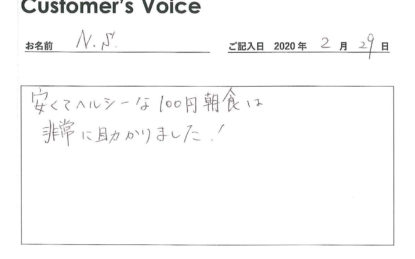 Customer's Voice
お名前 N.S. ご記入日 2020 年 2 月 29 日
安くてヘルシーな100円朝食は
非常に助かりました!